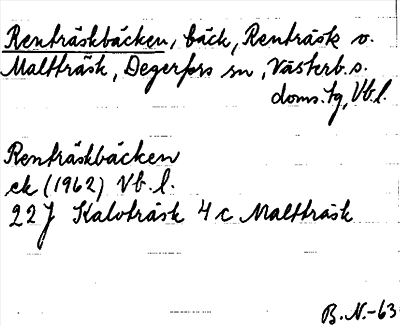 Renträskbäcken, bäck, Renträsk o.
Maltträsk, Degerfors sn, Västerb. s.
doms. tg, Vb. l.
Renträskbäcken
ek (1962) Vb. l.
22J Kalvträsk 4c Maltträsk
B. N. -63